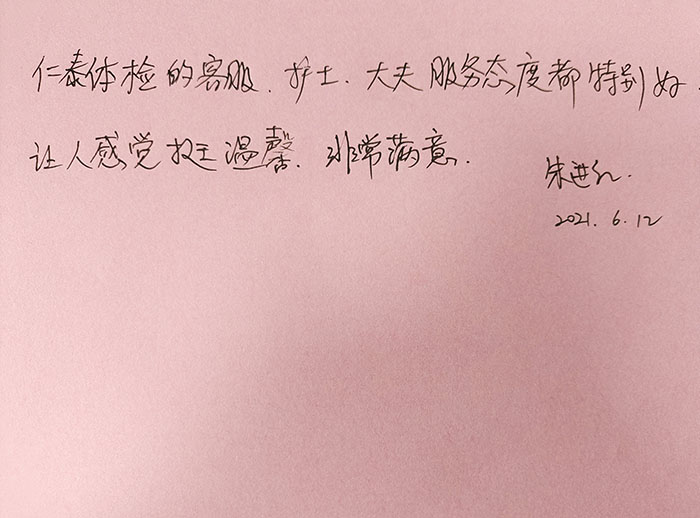 仁泰体检的客服、护士、大夫服务态度都特别好，
让人感觉挺温馨、非常满意.
朱进红.
2021.6.12